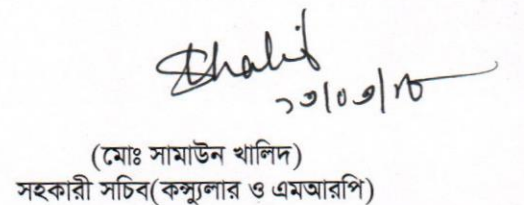 Khalid
(মোঃ সামাউন খালিদ)
সহকারী সচিব(কন্স্যুলার ও এমআরপি)